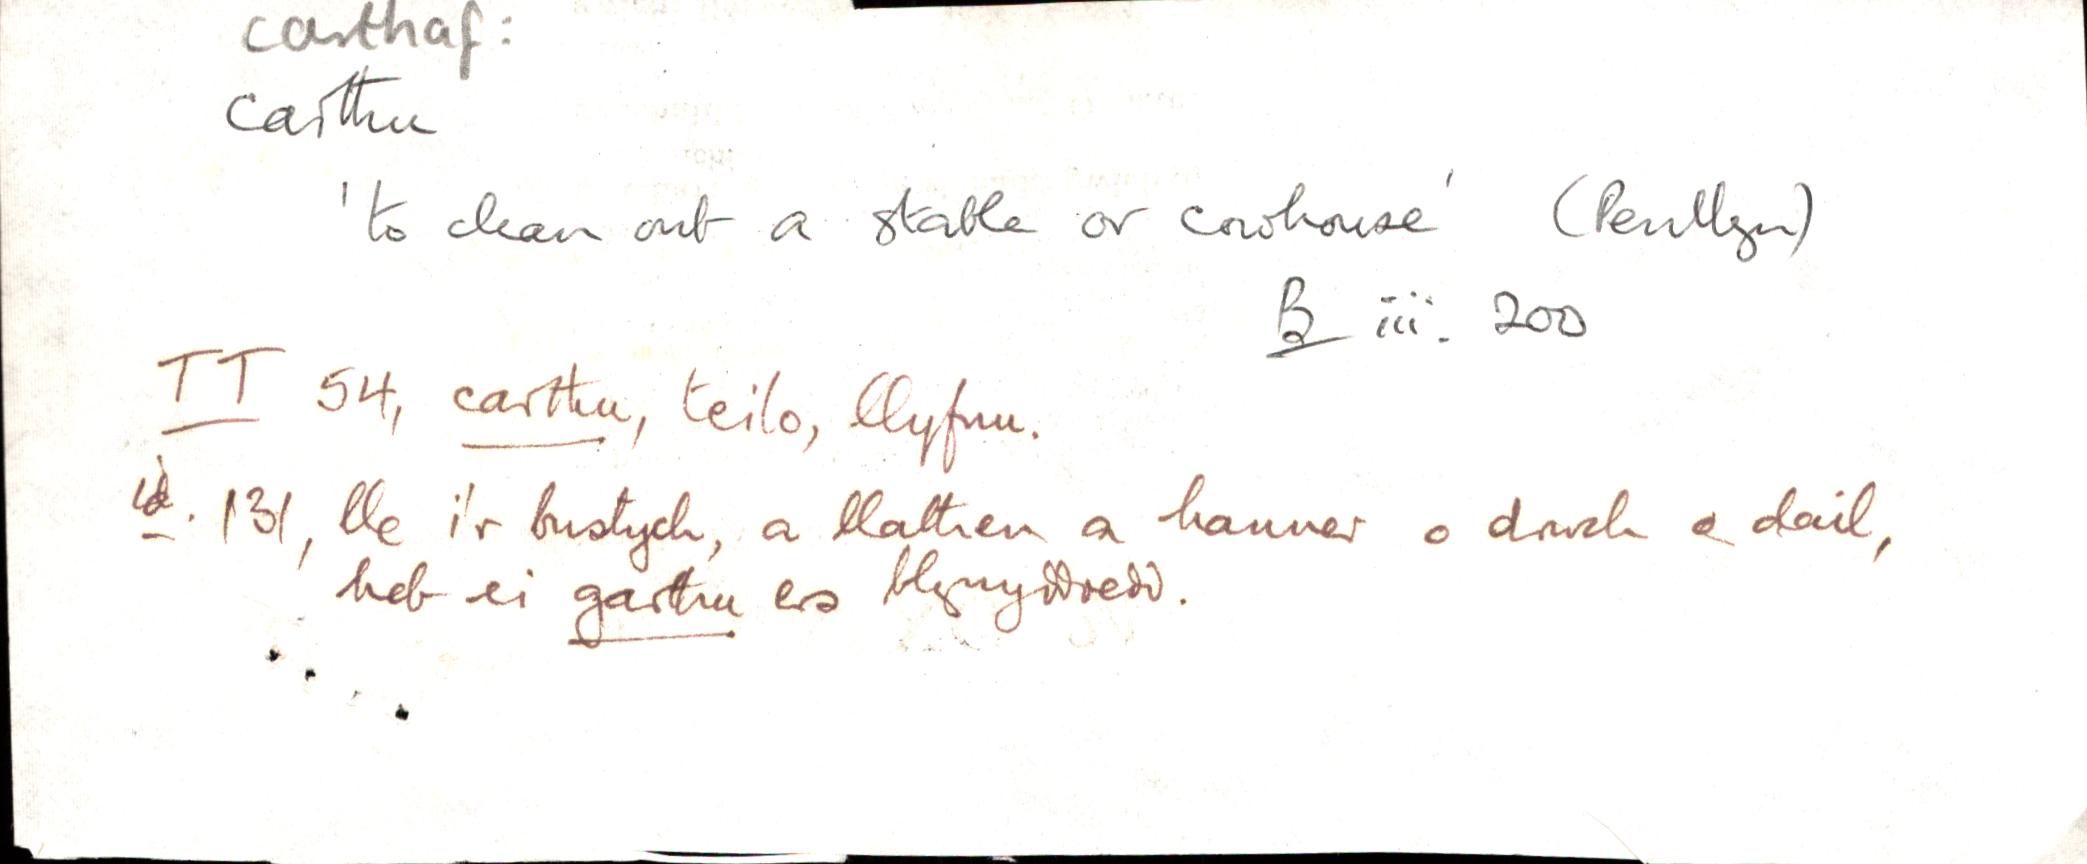 carthaf:
carthu
'to clean out a stable or cowhouse' (Penllyn)
B iii. 200
TT 54, carthu, teilo, llyfnu.
id. 131, lle i'r bustych, a llathen a hanner o drwch o dail,
heb ei garthu ers blynyddoedd.